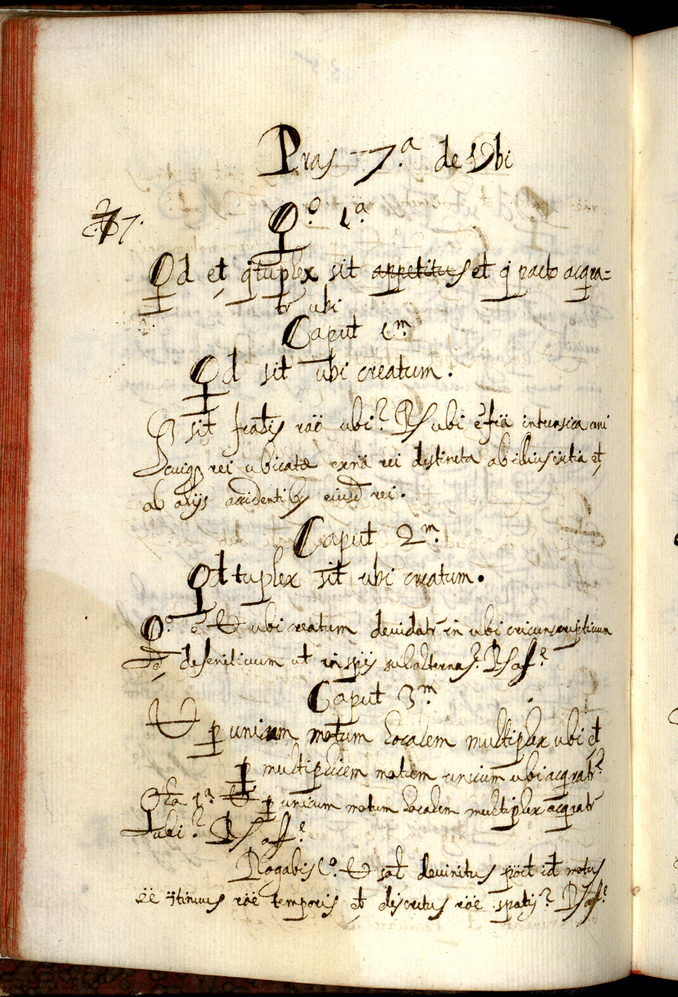 Pras 7.ª de Ubi
77.
Q.º 1.ª
Qd et qtuplex sit appetitus et q pacto acqra=
tr ubi
Caput 1.m
Qd sit ubi creatum.
sit fratis raë ubi? Rs ubi intrinsica
cuiq rei ubicatæ rei distincta ab illius et
ab accidentib eiusd rei.
Caput 2.m
Qttuplex sit ubi creatum.
Q.º ê ubi creatum deuidatr in ubi circunscriptiuum
definitiuum ut in spēs subalternas? Rs aff.e
Caput 3.m
p unicum motum localem multiplex ubi et
p multiplicem motum unicum ubi acqratr?
1.ª p unicum motum localem multiplex acqratr
ubi? Rs aff.e
Rogabis 1.º deuinitus pōt id motus
ëë ꝯtinuus raë temporis et discretus raë spatij? Rs aff.e